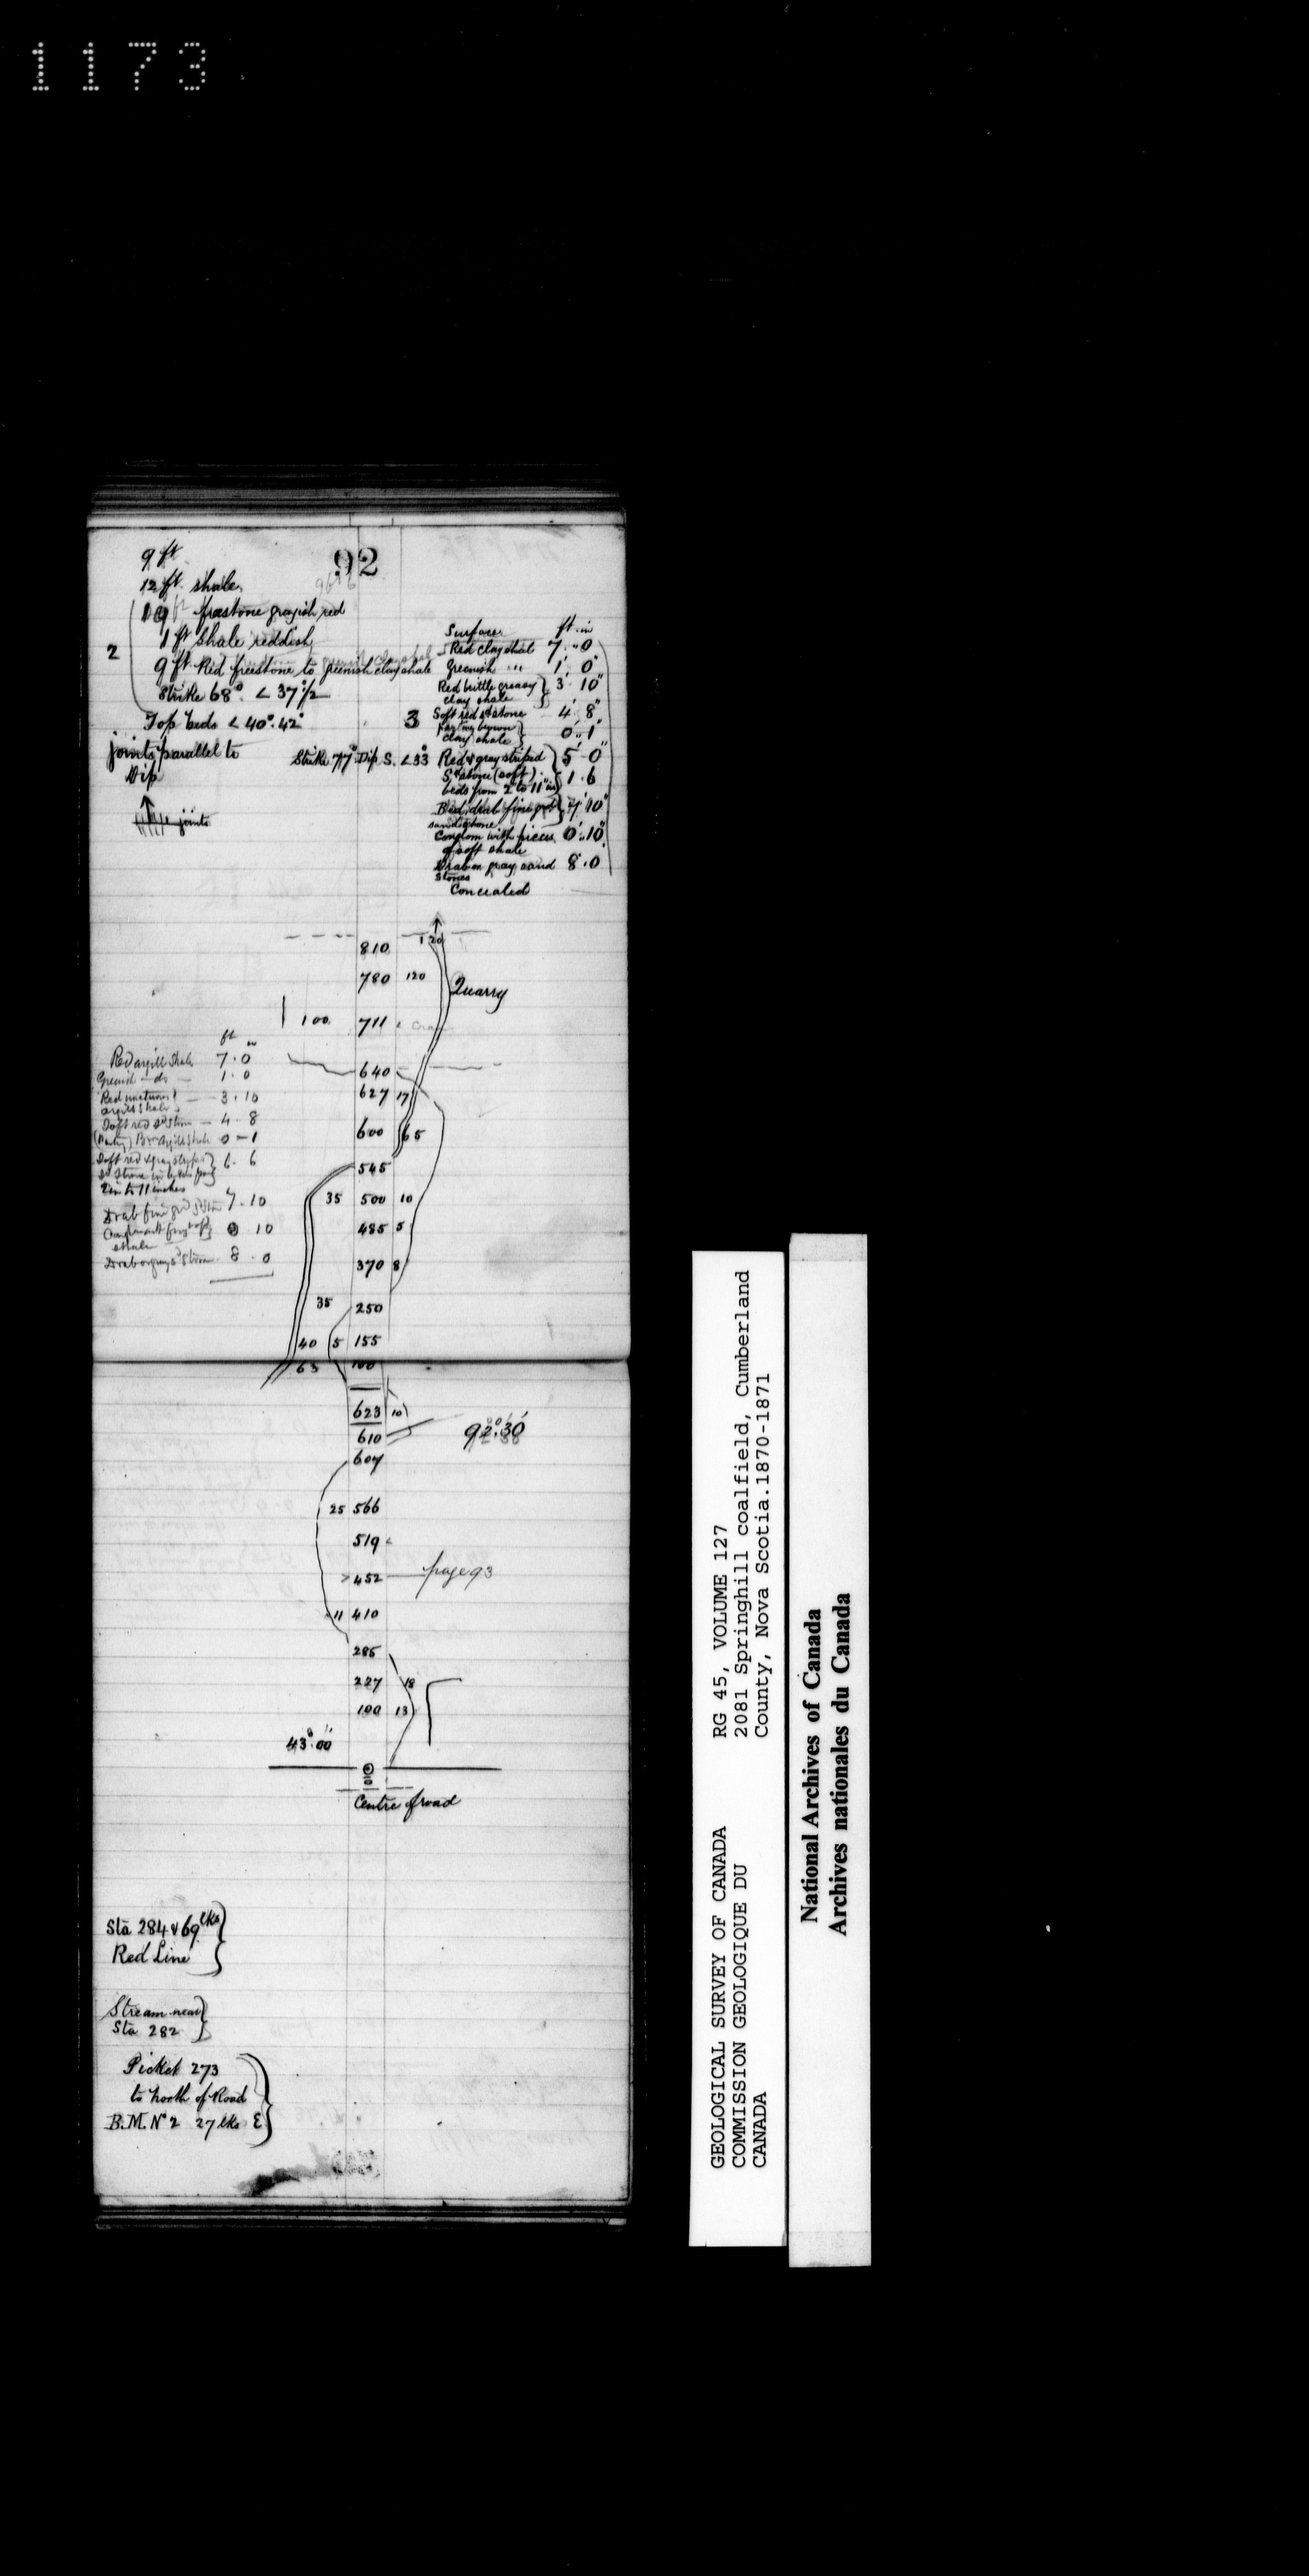 1173
92
9 ft
12 ft shale
19 ft freestone grayish red
1 ft Shale reddish
2
9 ft Red freestone to greenish clay shale
Strike 68° < 37 1/2
Top beds < 40°. 42°
joints parallel to
Dip
joints
Strike 77° Dip S. < 33°
3
Surface ft in
Red clay shal 7 " 0
Greenish " 1 0
Red brittle greasy } 3 10"
clay shale
Soft red st stone 4 8"
Parting brown } 0 " 1
clay shale
Red & gray striped } 5 0
Sd stone (soft)
beds from 2 to 11 in } 1. 6
Bed, drab fine grd } 7 10"
sandstone
Conglom with pieces 0 " 10
of soft shale
Drab or gray sand 8. 0
stones
Concealed
810 120
780 120 Quarry
100 711
640
627 17
600 65
545
35 500 10
485 5
370 8
35 250
40 5 155
63 100
ft in
Red argill Shale 7. 0
Greenish - do - 1. 0
Red unctuous } 3. 10
argill Shale
Soft red sd Stone - 4 - 8
(Parting) Brn Argill Shale 0 - 1
Soft red & gray stripes } 6. 6
Sd Stone in beds from
2 in to 11 inches
Drab fine grd Sd Ston 7. 10
0. 10
shale
Drab or gray Sd Stone 8. 0
623 10
610 92°.30'
607
25 566
519
452 page 93
11 410
285
227 18
100 13
43°.00'
0
Centre of road
Sta 284 & 69 lks
Red Line
Stream near
Sta 282
Picket 273
to North of Road
B.M. No 2 27 lks E
GEOLOGICAL SURVEY OF CANADA RG 45, VOLUME 127
COMMISSION GEOLOGIQUE DU 2081 Springhill coalfield, Cumberland
CANADA County, Nova Scotia.1870-1871
National Archives of Canada
Archives nationales du Canada